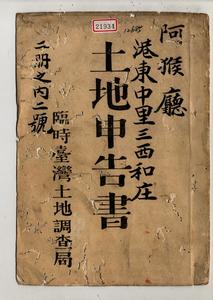 21934
阿猴廳
港東中里三西和庄
土地申告書
二冊之內二號
臨時臺灣土地調查局